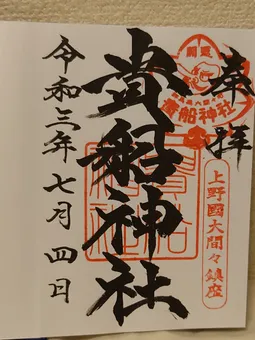 奉拝
開運
貴船神社
上野國大間々鎮座
貴船神社
令和三年七月四日